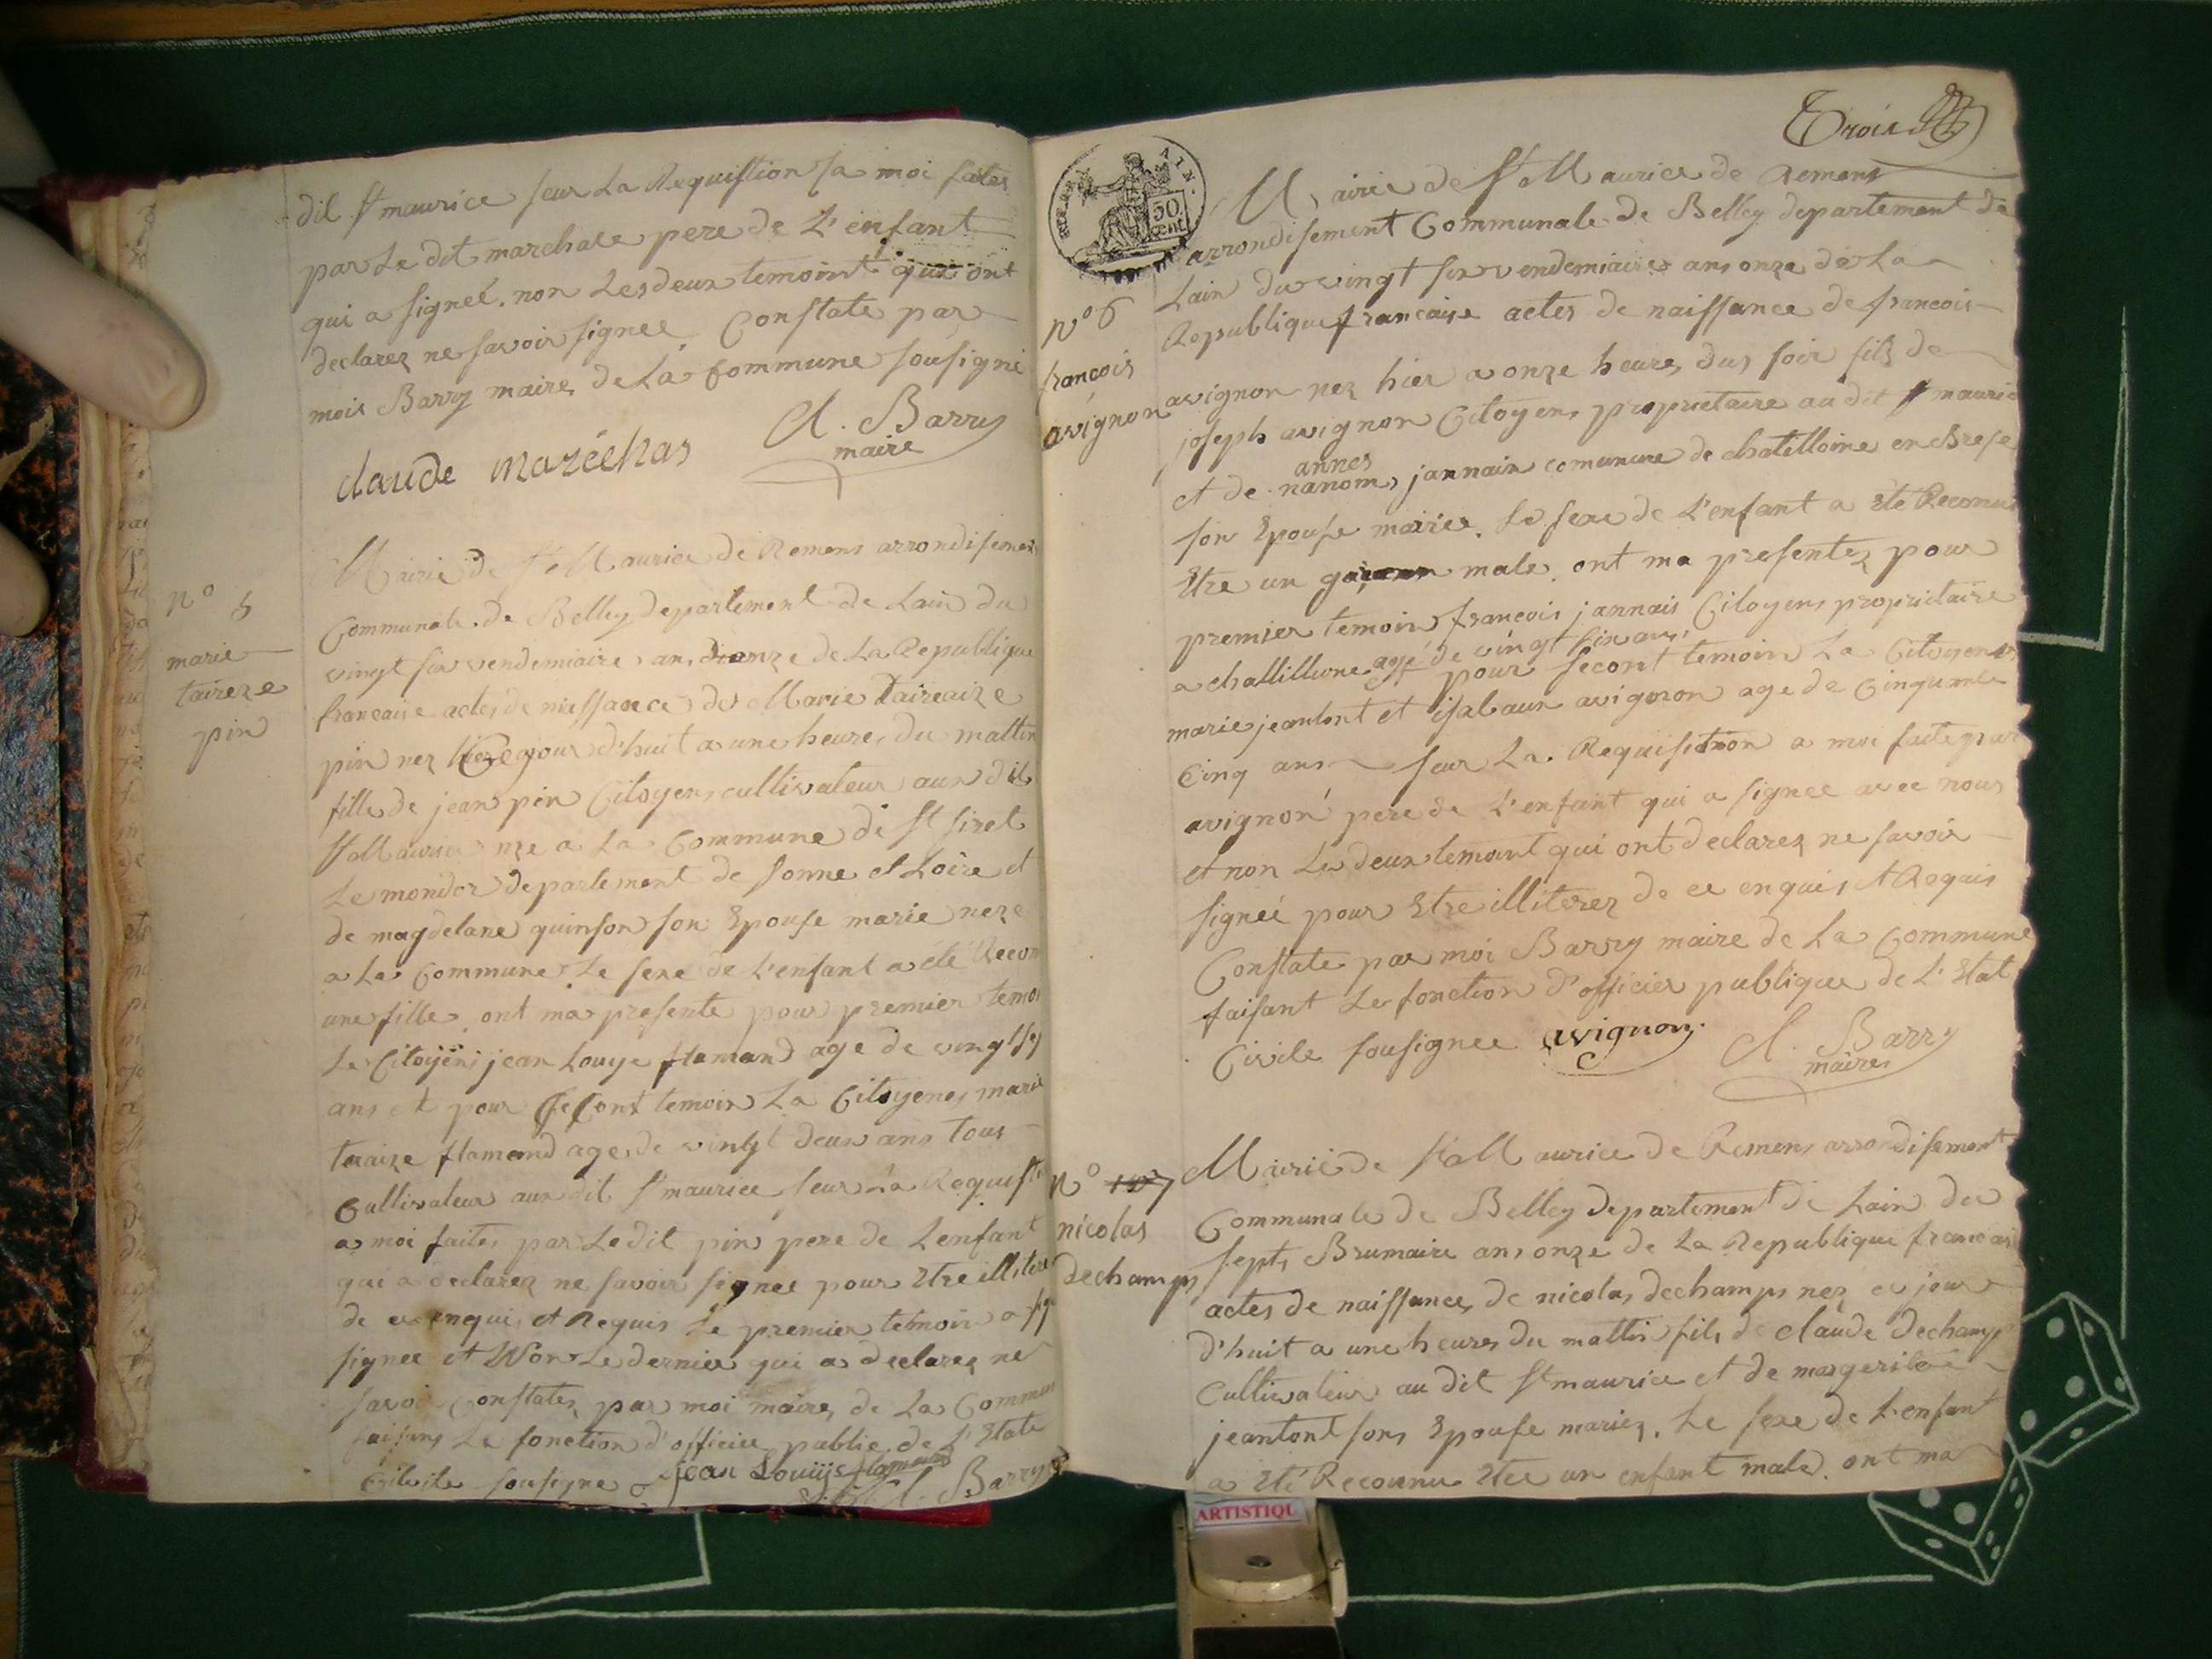 dit St maurice seur La Requistion sa moi fates
par Le dit marchale pere de L'enfant
qui a signeé. non Les deux temoint qui ont
declarez ne savoir signee Constate par
mois Barry maire de La Commune sousigné
Cl. Barry
maire
claude maréchas
n° 5
marie
taireze
pin
Mairie de St Maurice de Remens arrondisement
Communale de Belley departement de Lain du
vingt six vendemiaire ans onze de La Republique
francaise actes de naissance de Marie Taireaize
pin nez ce jour d'huit a une heure du mattin
fille de jean pin Citoyens cultivateur aux dit
St Maurice nee a La Commune de St
Le departement de Sonne et Loire et
de magdelane quinson son Epouse marie neze
a La Commune. Le sexe de L'enfant a été Recon
une fille. ont ma presente pour premier temoi
Le Citoyens jean Louye flamand age de vingt
ans et pour secont temoin La Citoyenes marie
teraize flamend age de vinht deux ans tous
Cultivateur aux dit St maurice seur La Requist
a moi faites par Le dit pin pere de Lenfant
qui a declarez ne savoir signee pour Etre illitere
de ce enquis et Requis Le premier temoin a
signee et Non Le dernier qui a declarez ne
savoi Constates par moi maire de La Commun
faisans La fonction d'officier public de L'Etate
Civile sousigne jean Louiys flamand
Cl. Barry
Trois
AIN.
50
cent
Mairie de St Maurice de Remens
arrondisement Communale de Belley departement de
Lain du vingt six vendemiaires ans onze de La
Republique francaise actes de naissance de francois
n° 6
françois
avignon
avignon nez hier a onze heure dus soir fils de
joseph avignon Citoyens proprietaire au dit St mauric
annes
et de nanom, jannain comunure de chatilloine en Brese
son Epouse mariée. Le sexe de L'enfant a été Reconu
Etre un garcon male. ont ma presentez pour
premier temoin francois jannais Citoyens proprietaire
agé de vingt six ans
a chattillione et pour secont temoin La Citoyenes
marie jeantont et isabaux avignon age de Cinquante
Cinq ans seur La Requisition a moi faite par
avignon pere de L'enfant qui a signee avec nous
et non Les deux temoint qui ont declarez ne savoir
signeé pour Etre illiterez de ce enquis et Requis
Constate par moi Barry maire de La Commune
faisant Le fonction d'officier publique de L'Etat
Civile sousignee avignon.
Cl. Barry
maire
n° 7
nicolas
dechamps
Mairie de St Maurice de Remens arrondisement
Communale de Belley departement de Lain du
sept, Brumaire ans onze de La Republique francais
actes de naissance, de nicolas dechamps nez ce jour
d'huit a une heure, du mattin fils de claude dechamp
Cultivateur au dit St maurice et de margerite
jeantont sons Epouse mariez. Le sexe de L'enfant
a eté Reconnu Etre un enfant male. ont ma
ARTISTIQU